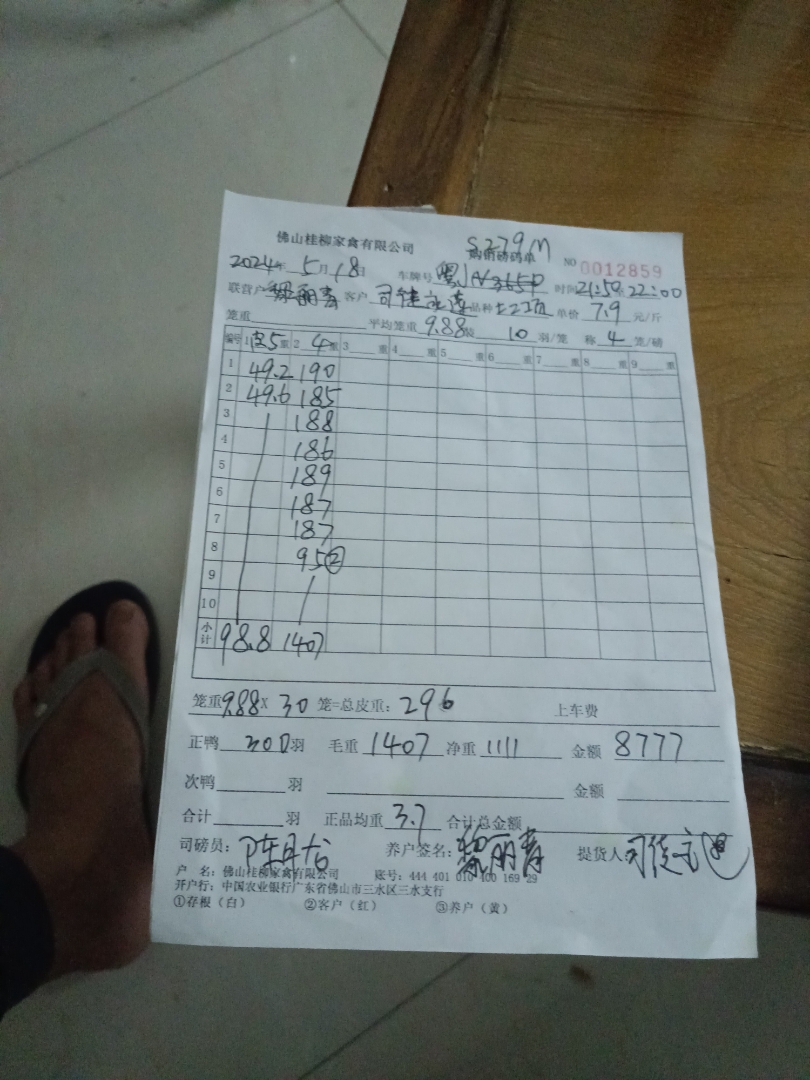 佛山桂柳家禽有限公司 S279M
购销磅码单 NO 0012859
2024年 5月18日 车牌号 粤 时间21:50至22:00
联营户 黎丽青 客户 司徒 品种 单价 7.9 元/斤
笼重 平均笼重 9.88 装 10 羽/笼 称 4 笼/磅
编号 1 5 重 2 4 重 3 重 4 重 5 重 6 重 7 重 8 重 9 重
1 49.2 190
2 49.6 185
3 188
4 186
5 189
6 187
7 187
8 95 ②
9
10
小计 98.8 1407
笼重 9.88 X 30 笼=总皮重: 296 上车费
正鸭 300 羽 毛重 1407 净重 1111 金额 8777
次鸭 羽 金额
合计 羽 正品均重 3.7 合计总金额
司磅员: 陈 养户签名: 黎丽青 提货人 司徒
户 名: 佛山桂柳家禽有限公司 账号: 444 401 010 400 169 29
开户行: 中国农业银行广东省佛山市三水区三水支行
①存根（白） ②客户（红） ③养户（黄）